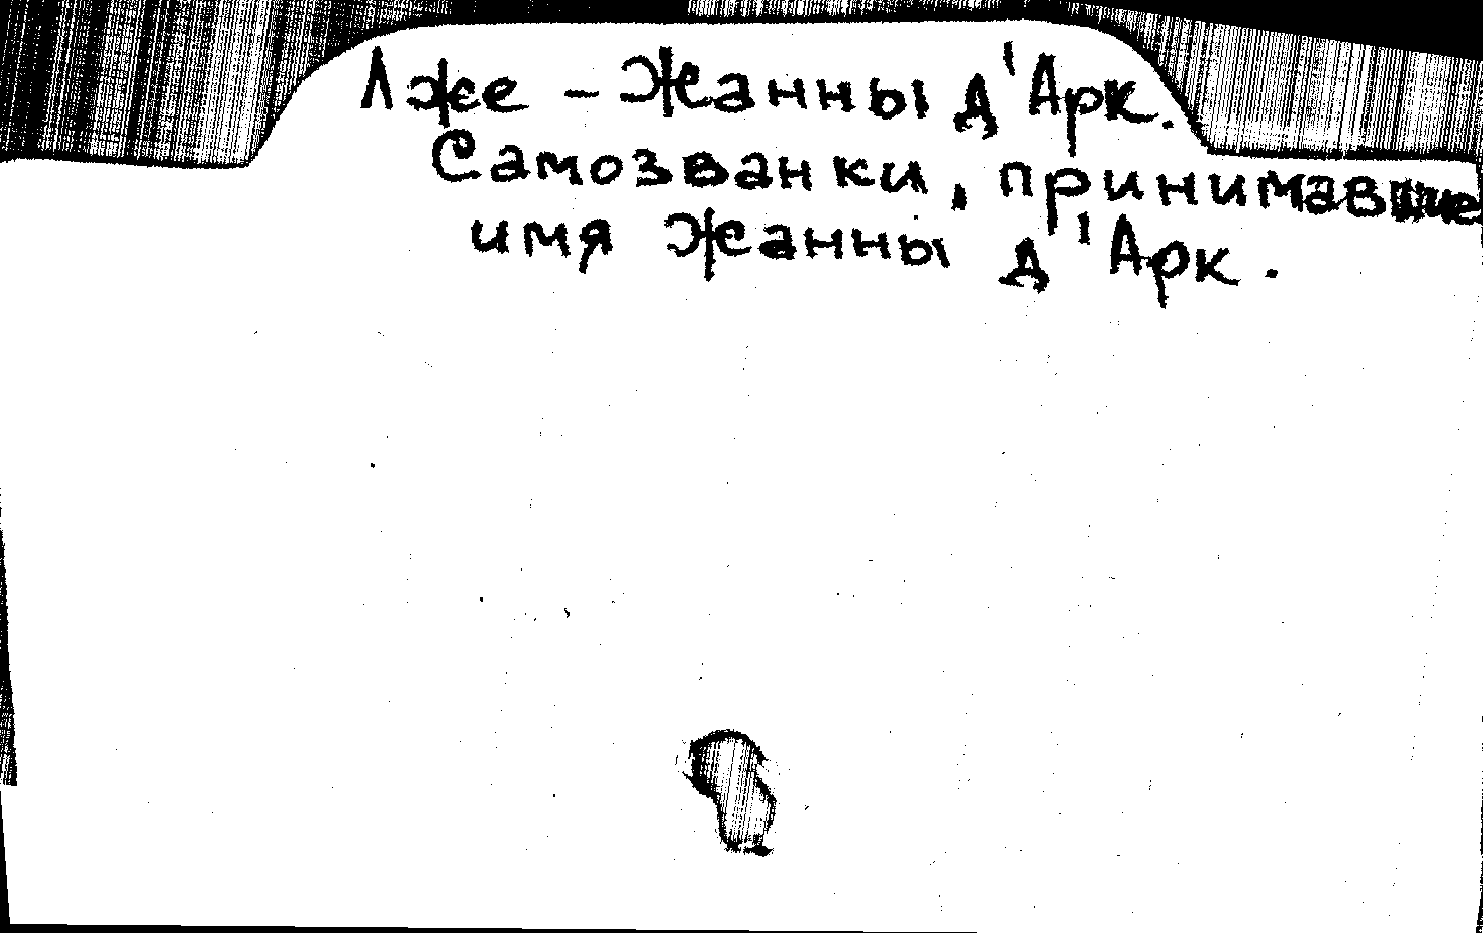 Лже - Жанны д'Арк.
Самозванки, принимавшие
имя Жанны д'Арк.